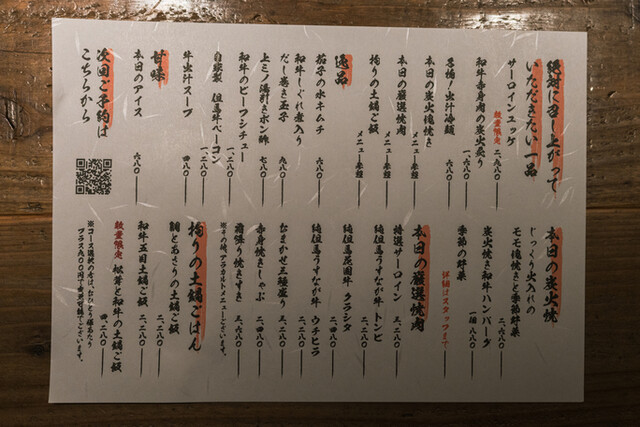 絶対に召し上がって
いただきたい一品
サーロインユッケ
数量限定 二、九八〇
和牛赤身肉の炭火炙り
一、六八〇
名物！出汁冷麺
六八〇
本日の炭火塊焼き
メニュー参照
本日の厳選焼肉
メニュー参照
拘りの土鍋ご飯
メニュー参照
逸品
茄子の水キムチ
六八〇
和牛しぐれ煮入り
だし巻き玉子
九八〇
上ミノ湯引きポン酢
七八〇
和牛のビーフシチュー
一、二八〇
自家製 但馬牛ベーコン
一、二八〇
牛出汁スープ
四八〇
甘味
本日のアイス
六八〇
次回ご予約は
こちらから
本日の炭火焼
じっくり火入れの
モモ塊焼きと季節野菜
二、六八〇
炭火焼き和牛ハンバーグ
一個 八八〇
季節の野菜
詳細はスタッフまで
本日の厳選焼肉
特選サーロイン
三、二八〇
純但馬うすなが牛 トンビ
二、六八〇
純但馬尾固牛 クラシタ
二、四八〇
純但馬うすなが牛 ウチヒラ
二、二八〇
おまかせ三種盛り
三、二八〇
赤身焼きしゃぶ
二、四八〇
霜降り焼きすき
三、六八〇
※その他、アラカルトメニューもございます。
拘りの土鍋ごはん
鯛とあさりの土鍋ご飯
二、二八〇
和牛五目土鍋ご飯
二、二八〇
数量限定 松茸と和牛の土鍋ご飯
四、二八〇
※コース選択の方は、おひとり様あたり
プラス九〇〇円で変更可能でございます。